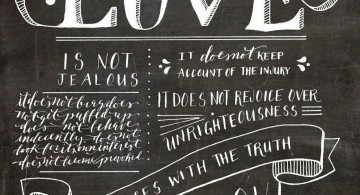 LOVE
IS NOT
JEALOUS
it does not brag does
not get puffed up
does not behave
indecently does not
look for its own interest
does not become provoked.
IT does not KEEP
ACCOUNT OF THE INJURY
IT DOES NOT REJOICE OVER
UNRIGHTEOUSNESS
CES WITH THE TRUTH